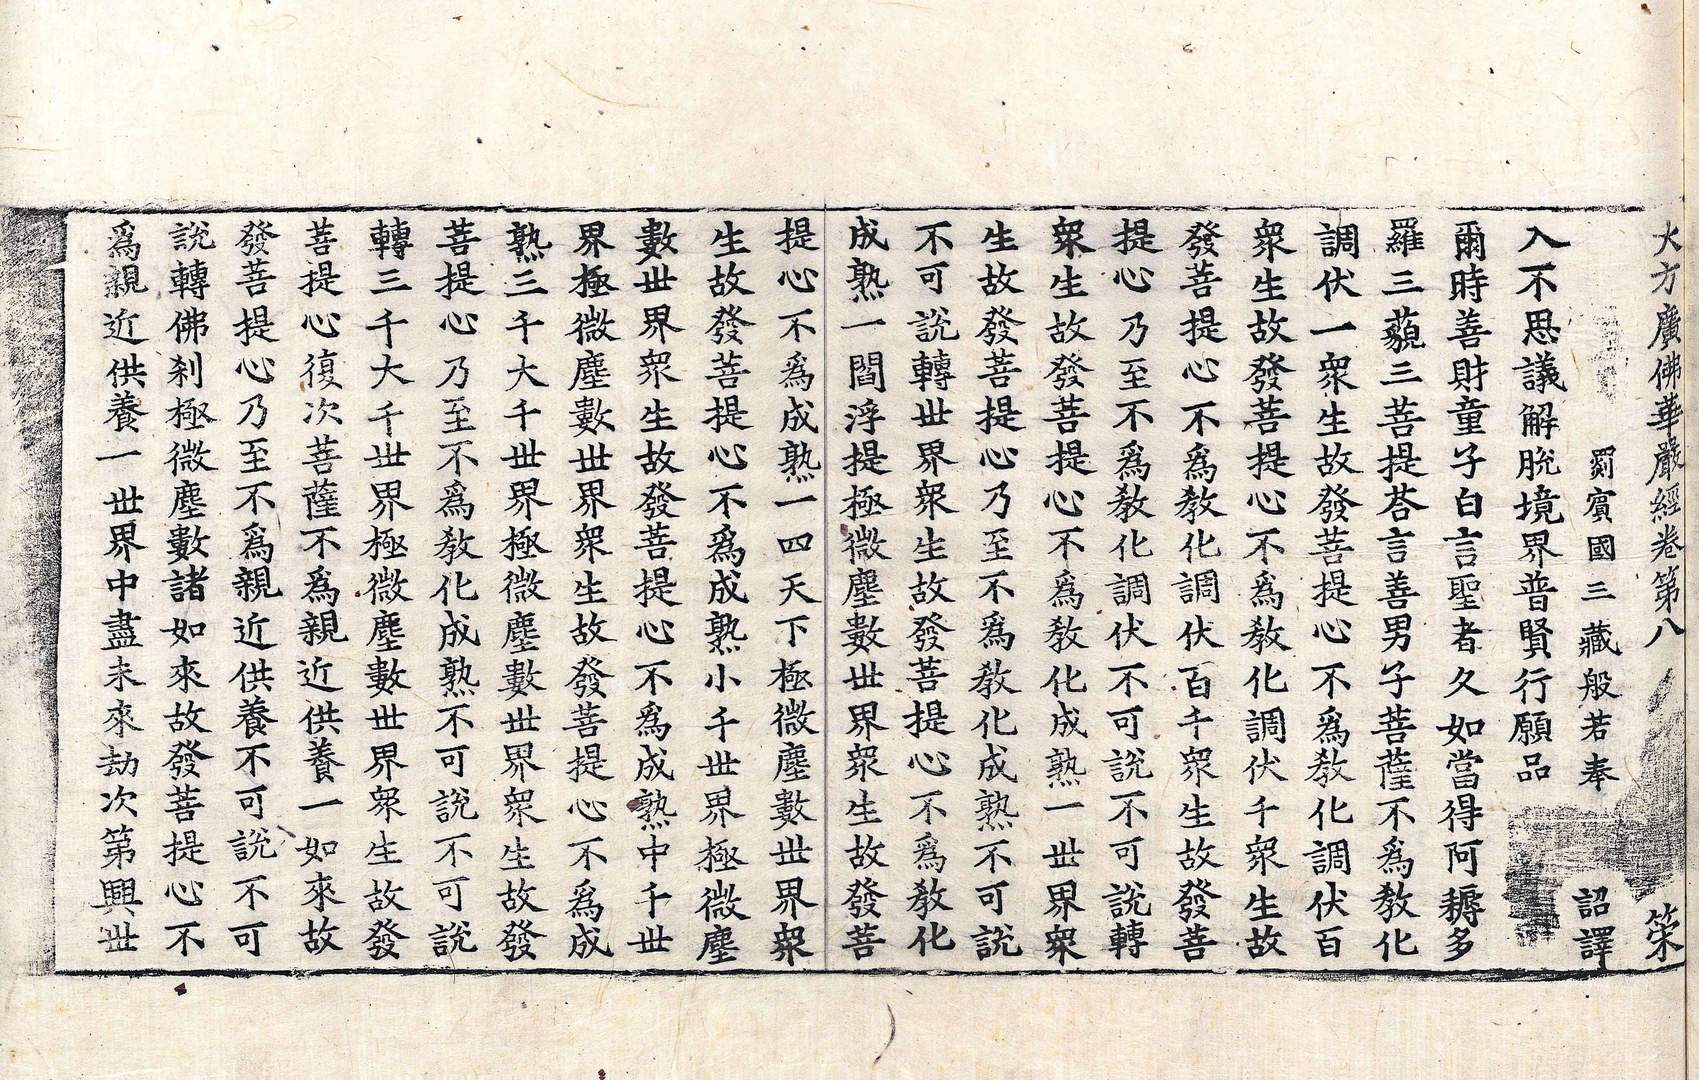 大方廣佛華嚴經卷第八
罽賓國三藏般若奉　詔譯
入不思議解脫境界普賢行願品
爾時善財童子白言聖者久如當得阿耨多
羅三藐三菩提荅言善男子菩薩不爲敎化
調伏一衆生故發菩提心不爲敎化調伏百
衆生故發菩提心不爲敎化調伏千衆生故
發菩提心不爲敎化調伏百千衆生故發菩
提心乃至不爲敎化調伏不可說不可說轉
衆生故發菩提心不爲敎化成熟一世界衆
生故發菩提心乃至不爲敎化成熟不可說
不可說轉世界衆生故發菩提心不爲敎化
成熟一閻浮提極微塵數世界衆生故發菩
提心不爲成熟一四天下極微塵數世界衆
生故發菩提心不爲成熟小千世界極微塵
數世界衆生故發菩提心不爲成熟中千世
界極微塵數世界衆生故發菩提心不爲成
熟三千大千世界極微塵數世界衆生故發
菩提心乃至不爲敎化成熟不可說不可說
轉三千大千世界極微塵數世界衆生故發
菩提心復次菩薩不爲親近供養一如來故
發菩提心乃至不爲親近供養不可說不可
說轉佛刹極微塵數諸如來故發菩提心不
爲親近供養一世界中盡未來劫次第興世